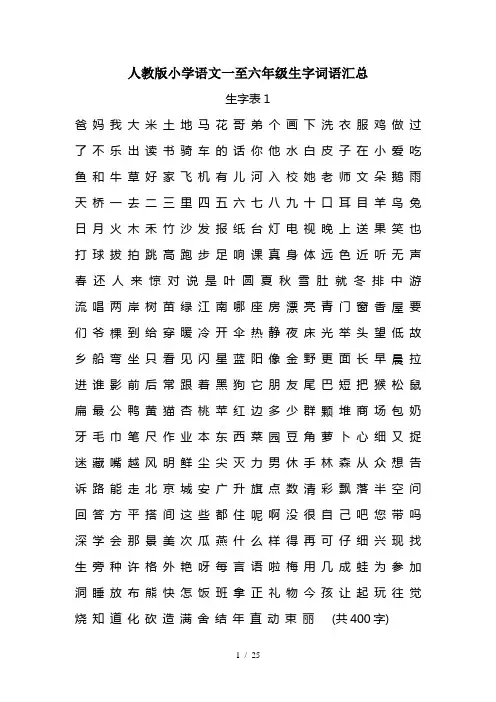 人教版小学语文一至六年级生字词语汇总
生字表1
爸 妈 我 大 米 土 地 马 花 哥 弟 个 画 下 洗 衣 服 鸡 做 过
了 不 乐 出 读 书 骑 车 的 话 你 他 水 白 皮 子 在 小 爱 吃
鱼 和 牛 草 好 家 飞 机 有 儿 河 入 校 她 老 师 文 朵 鹅 雨
天 桥 一 去 二 三 里 四 五 六 七 八 九 十 口 耳 目 羊 鸟 兔
日 月 火 木 禾 竹 沙 发 报 纸 台 灯 电 视 晚 上 送 果 笑 也
打 球 拔 拍 跳 高 跑 步 足 响 课 真 身 体 远 色 近 听 无 声
春 还 人 来 惊 对 说 是 叶 圆 夏 秋 雪 肚 就 冬 排 中 游
流 唱 两 岸 树 苗 绿 江 南 哪 座 房 漂 亮 青 门 窗 香 屋 要
们 爷 棵 到 给 穿 暖 冷 开 伞 热 静 夜 床 光 举 头 望 低 故
乡 船 弯 坐 只 看 见 闪 星 蓝 阳 像 金 野 更 面 长 早 晨 拉
进 谁 影 前 后 常 跟 着 黑 狗 它 朋 友 尾 巴 短 把 猴 松 鼠
扁 最 公 鸭 黄 猫 杏 桃 苹 红 边 多 少 群 颗 堆 商 场 包 奶
牙 毛 巾 笔 尺 作 业 本 东 西 菜 园 豆 角 萝 卜 心 细 又 捉
迷 藏 嘴 越 风 明 鲜 尘 尖 灭 力 男 休 手 林 森 从 众 想 告
诉 路 能 走 北 京 城 安 广 升 旗 点 数 清 彩 飘 落 半 空 问
回 答 方 平 搭 间 这 些 都 住 呢 啊 没 很 自 己 吧 您 带 吗
深 学 会 那 景 美 次 瓜 燕 什 么 样 得 再 可 仔 细 兴 现 找
生 旁 种 许 格 外 艳 呀 每 言 语 啦 梅 用 几 成 蛙 为 参 加
洞 睡 放 布 熊 快 怎 饭 班 拿 正 礼 物 今 孩 让 起 玩 往 觉
烧 知 道 化 砍 造 满 舍 结 年 直 动 束 丽 (共400字)
1 / 25